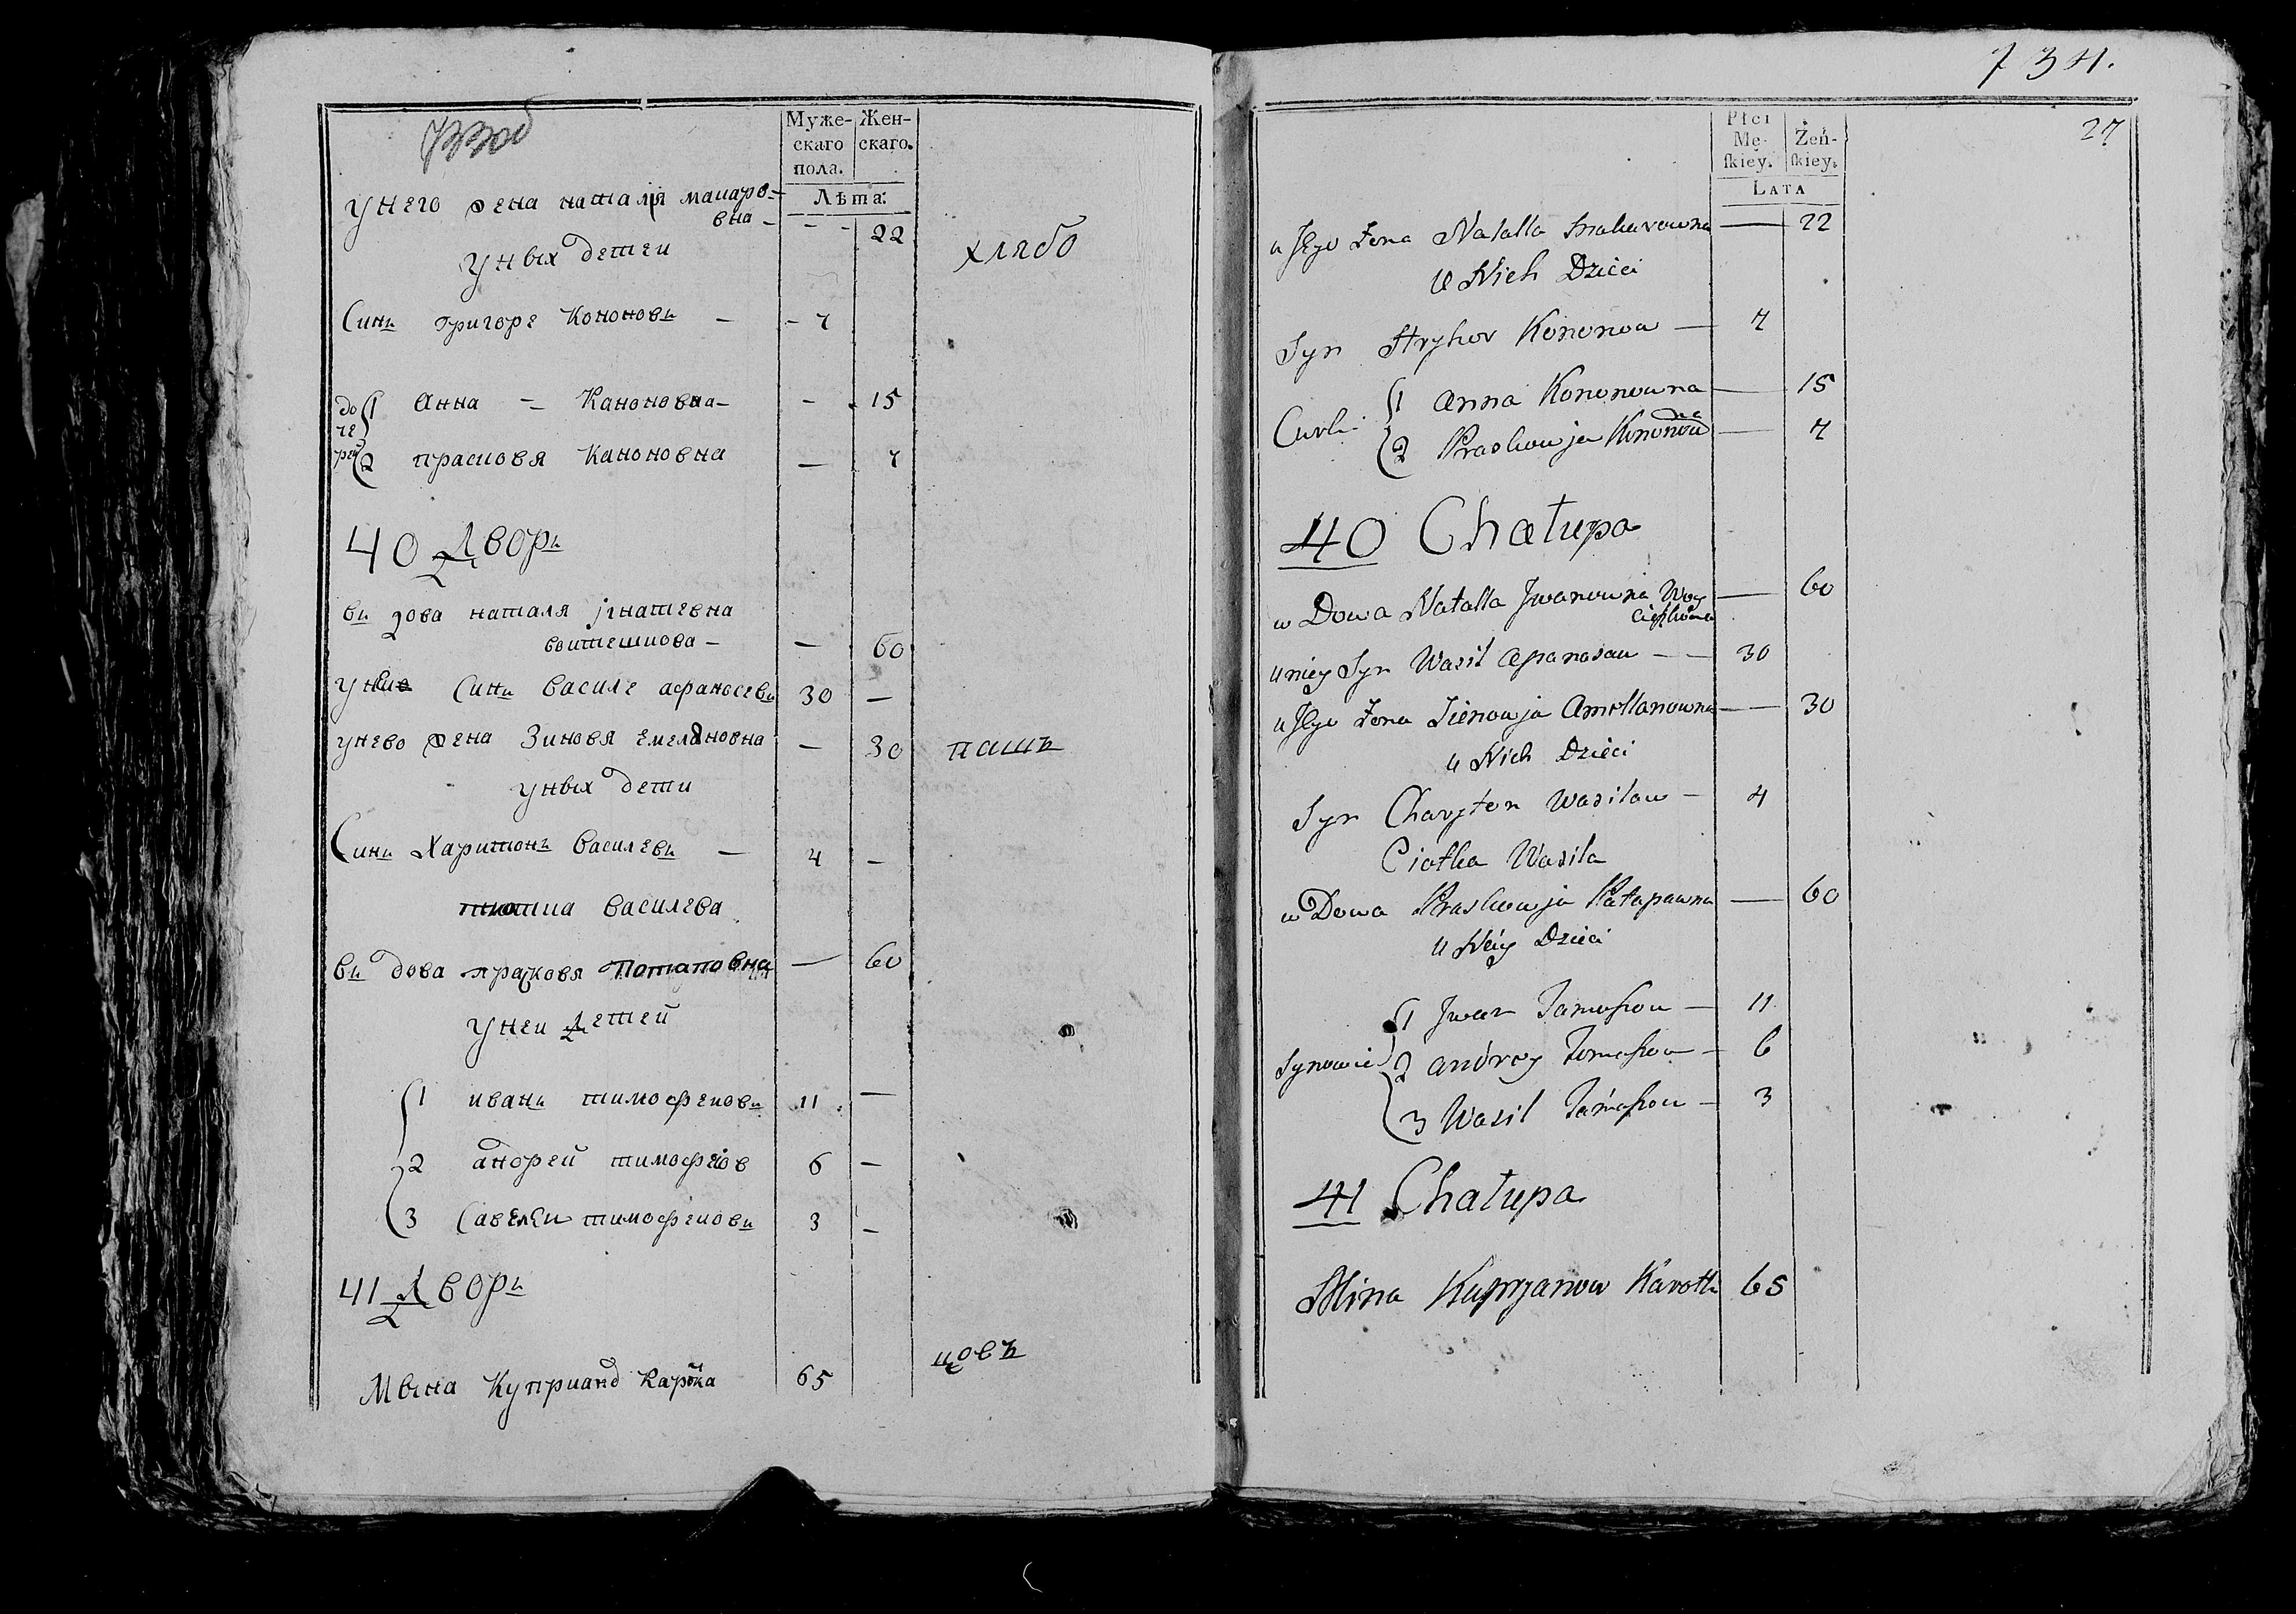 Муже-
скаго
пола.
Жен-
скаго.
Лѣта:
унего жена наталя макаро-
вна - - - 22
уных детеи
хлябо
Синъ григоре Кононовъ - - 7
до
че
рей
1 Анна - Канановна - - 15
2 прасковя Канановна - 7
40 Дворъ
въ дова наталя игнатевна
воитешкова - - 60
Синъ василе афаносевъ 30 -
унево жена Зиновя емеляновна - 30
пашъ
уных дети
Синъ Харитонъ василевъ - 4 -
тиотка василева
въ дова прасковя Потаповна - 60
унеи детей
1 иванъ тимофеиовъ 11 -
2 андреи тимофеиов 6 -
3 Савелеи тимофеиовъ 3 -
41 Дворъ
цовъ
Мвена Куприано 65
734.
27
Płci
Mę-
skiey.
Żeń-
skiey.
LATA
u Jego Żona Natalla Makarowna — 22
U Nich Dzieci
Syn Hryhor Kononow — 7
Curki
1 Anna Kononowna — 15
2 Praskowja Kononowna — 7
40 Chałupa
w Dowa Natalla Jwanowna Woy
— 60
u niey Syn Wasil Apanasau — — 30
u Jego Żona Zienowja Amellanowna — 30
u Nich Dzieci
Syn Charyton Wasilau — 4
Ciotka Wasila
w Dowa Praskowja Patapawna — 60
u Niey Dzieci
Synowie
1 Jwan Tamaszou — 11
2 Andrey Tomaszou — 6
3 Wasil Tamaszou — 3
41 Chałupa
Mina Kupryanow 65